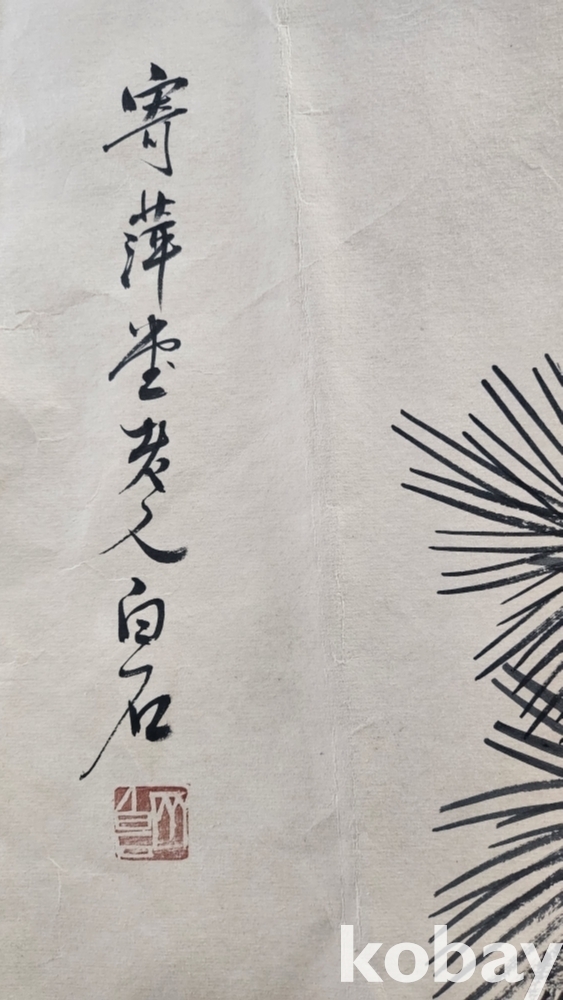 寄萍堂老人白石
kobay